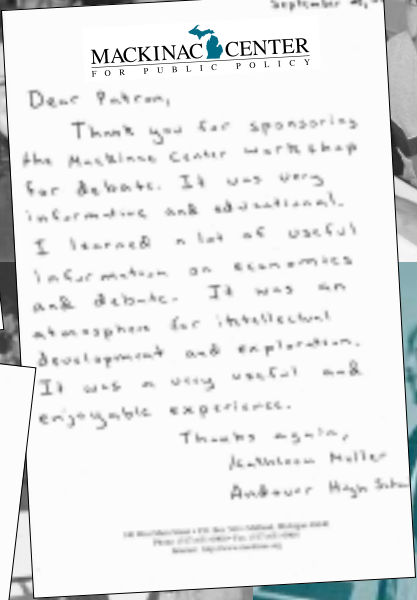 September
MACKINAC CENTER
FOR PUBLIC POLICY
Dear Patron,
Thank you for sponsoring
the Mackinac Center workshop
for debate. It was very
informative and educational.
I learned a lot of useful
information on economics
and debate. It was an
atmosphere for intellectual
development and exploration.
It was a very useful and
enjoyable experience.
Thanks again,
Kathleen Muller
Andover High